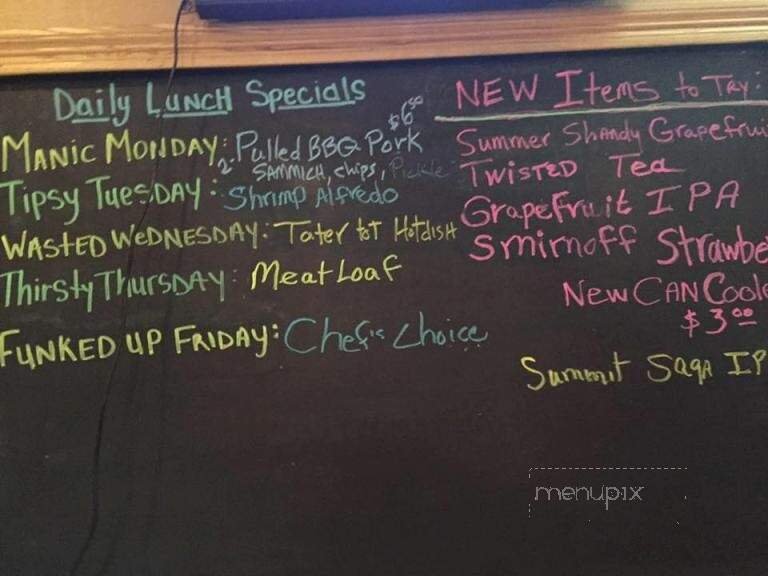 Daily LUNCH Specials
MANIC MONDAY: Pulled BBQ Pork $6.00
2. SAMMICH, chips, Pickle
Tipsy TUESDAY: Shrimp Alfredo
WASTED WEDNESDAY: Tater tot Hotdish
Thirsty Thursday: Meat Loaf
FUNKED UP FRIDAY: Chef's Choice
NEW Items to Try:
Summer Shandy Grapefrui
TWISTED Tea
Grapefruit IPA
Smirnoff Strawbe
New CAN Coole
$3.00
Summit Saga IP
menupix